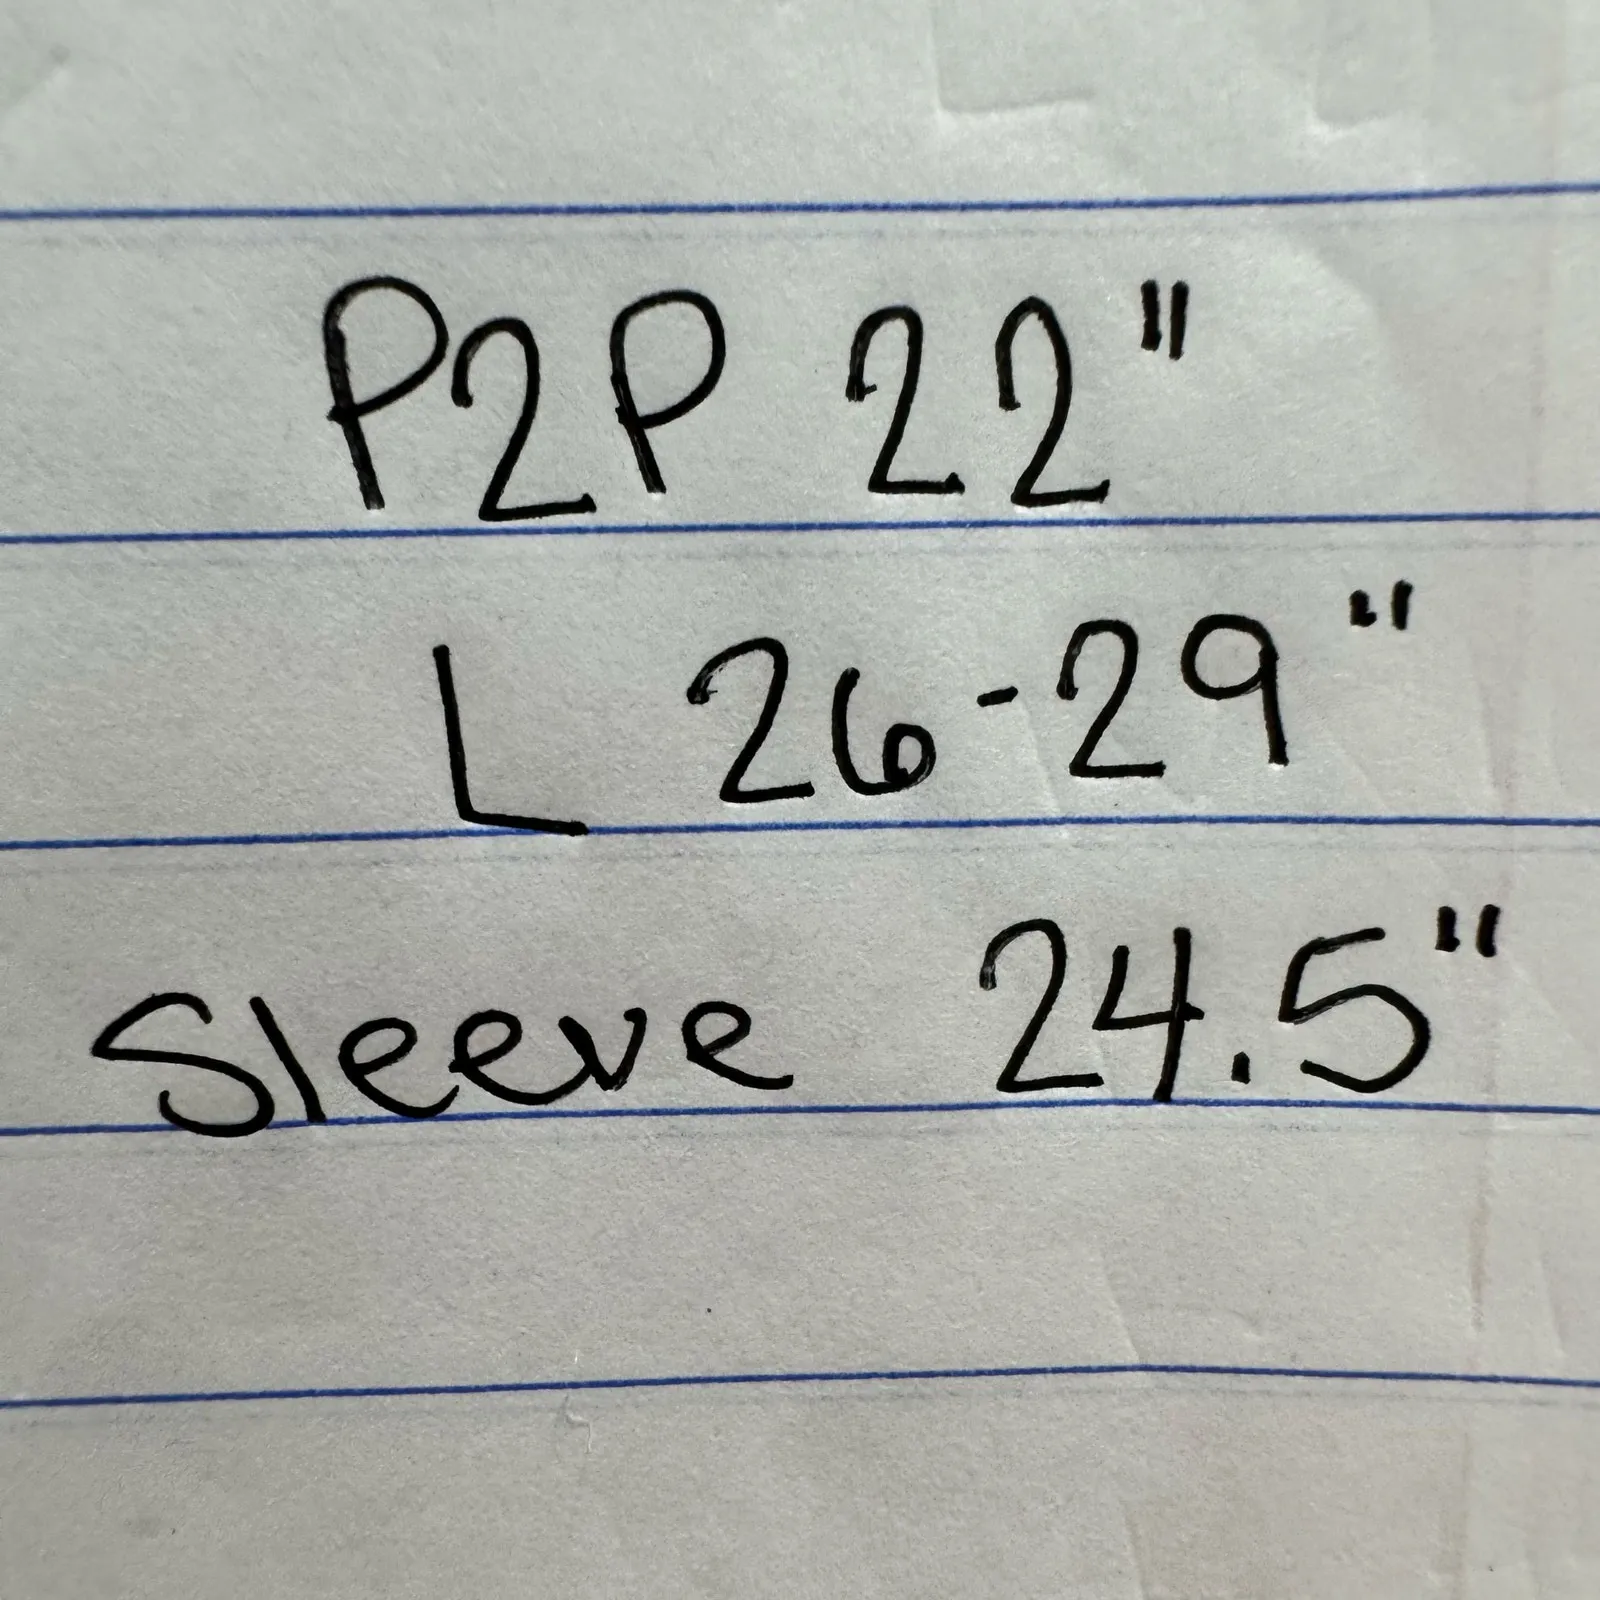 P2P 22"
L 26-29"
Sleeve 24.5"